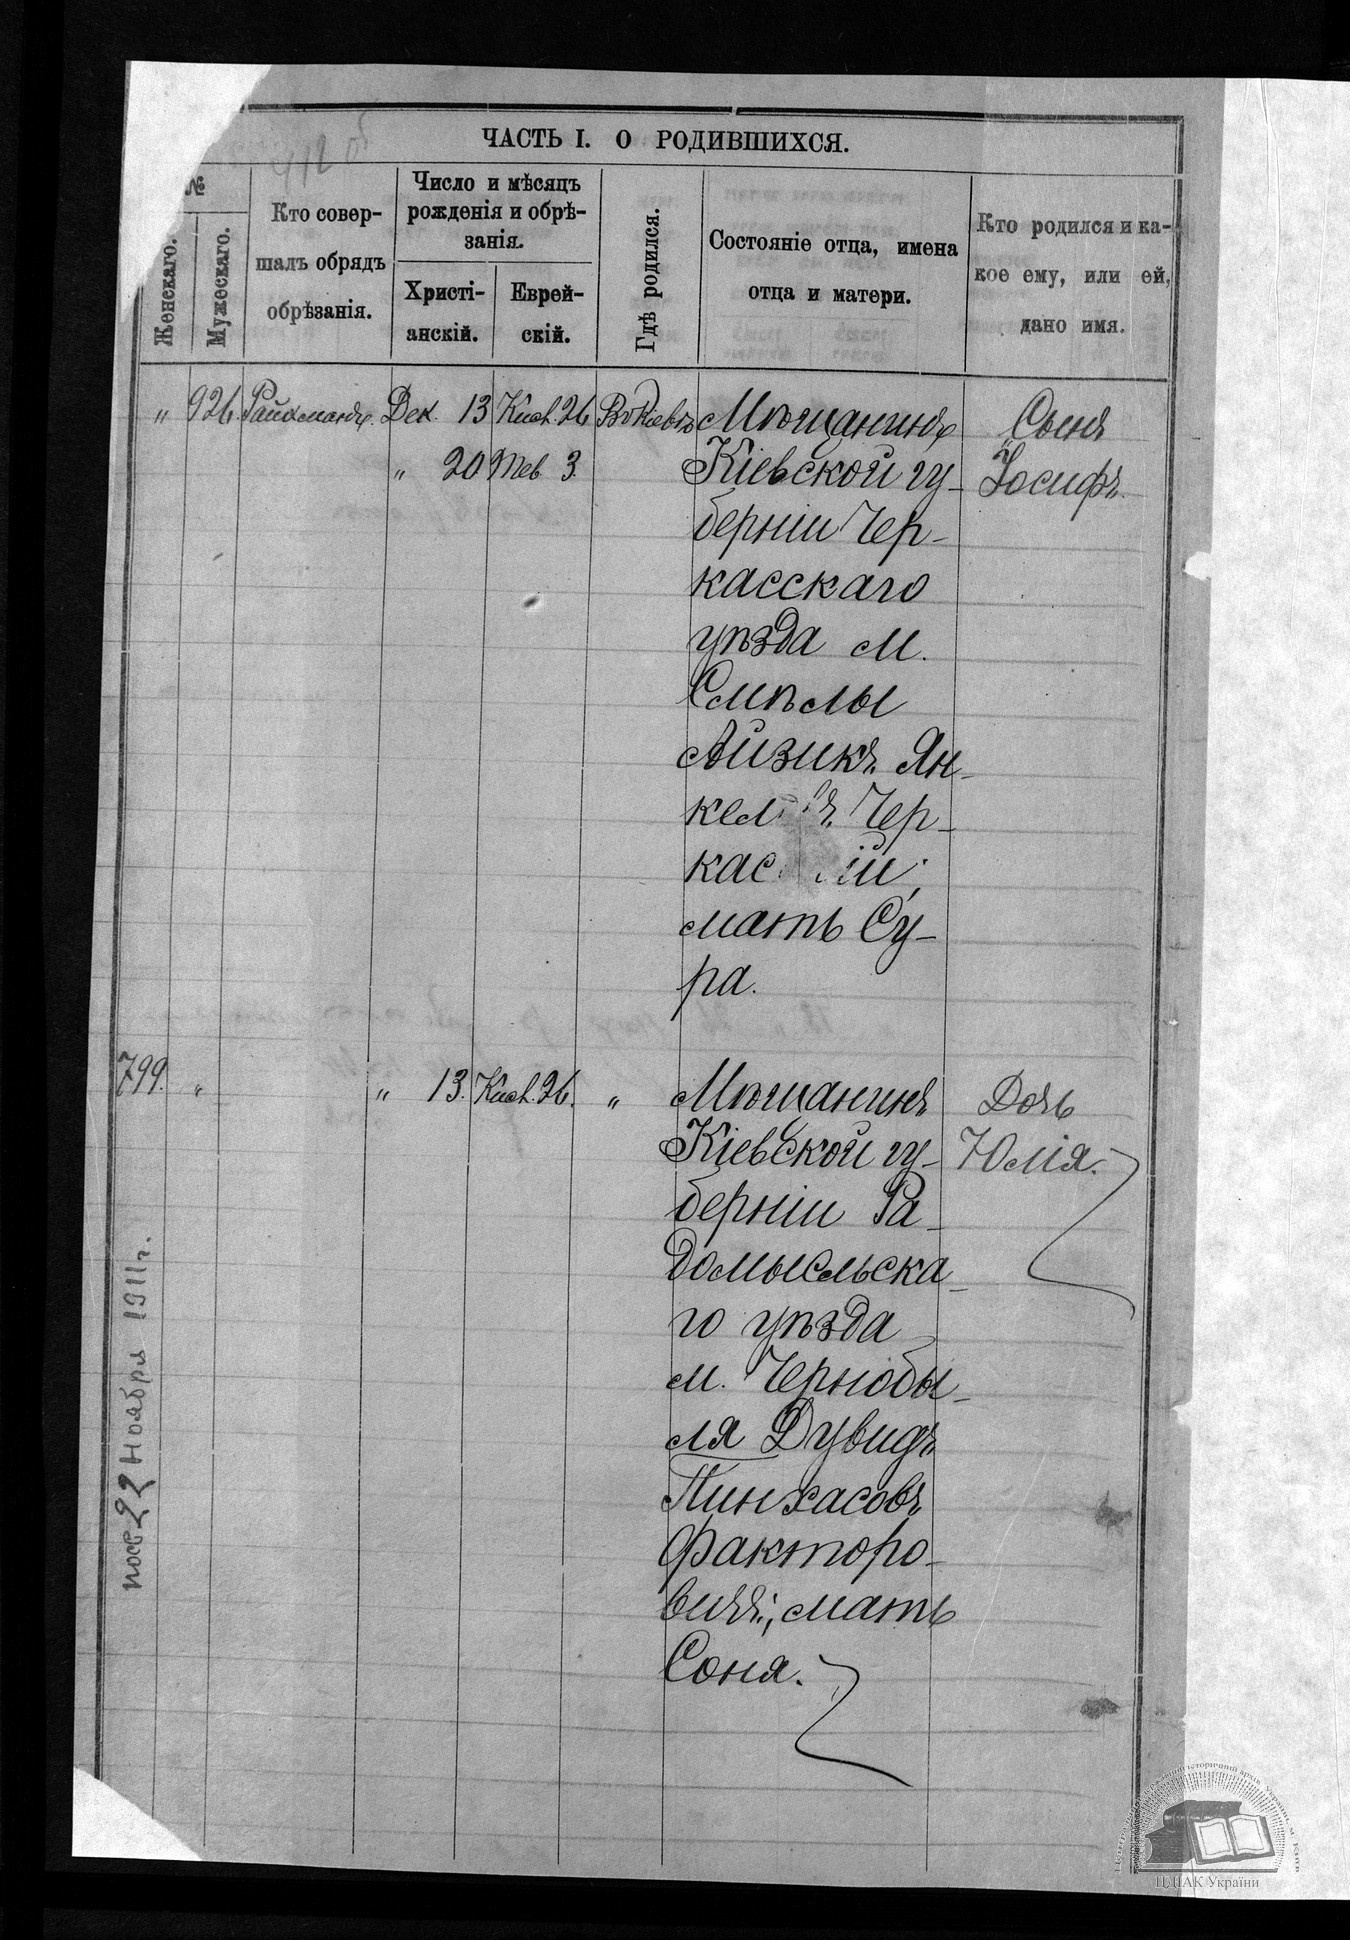 412 б
ЧАСТЬ I. О РОДИВШИХСЯ.
№
Женскаго.
Мужескаго.
Кто совер-
шалъ обрядъ
обрѣзанія.
Число и мѣсяцъ
рожденія и обрѣ-
занія.
Христі-
анскій.
Еврей-
скій.
Гдѣ родился.
Состояніе отца, имена
отца и матери.
Кто родился и ка-
кое ему, или ей,
дано имя.
„ 926. Райхманъ. Дек. 13 Кисл. 26 Въ Кіевѣ Мѣщанинъ Сынъ
„ 20 Тев 3. Кіевской гу- Іосифъ.
берніи Чер-
касскаго
уѣзда м.
Смѣлы
Айзикъ Ян-
кел въ Чер-
кас кій;
мать Су-
ра.
799. „ „ 13. Кисл. 26. „ Мѣщанинъ Дочь
Кіевской гу- Юлія.
берніи Ра-
домысльска-
го уѣзда
м. Чернобы-
ля Дувидъ
Пинхасовъ
Факторо-
вичъ; мать
Соня.
22 Ноября 1911 г.
ЦДІАК України